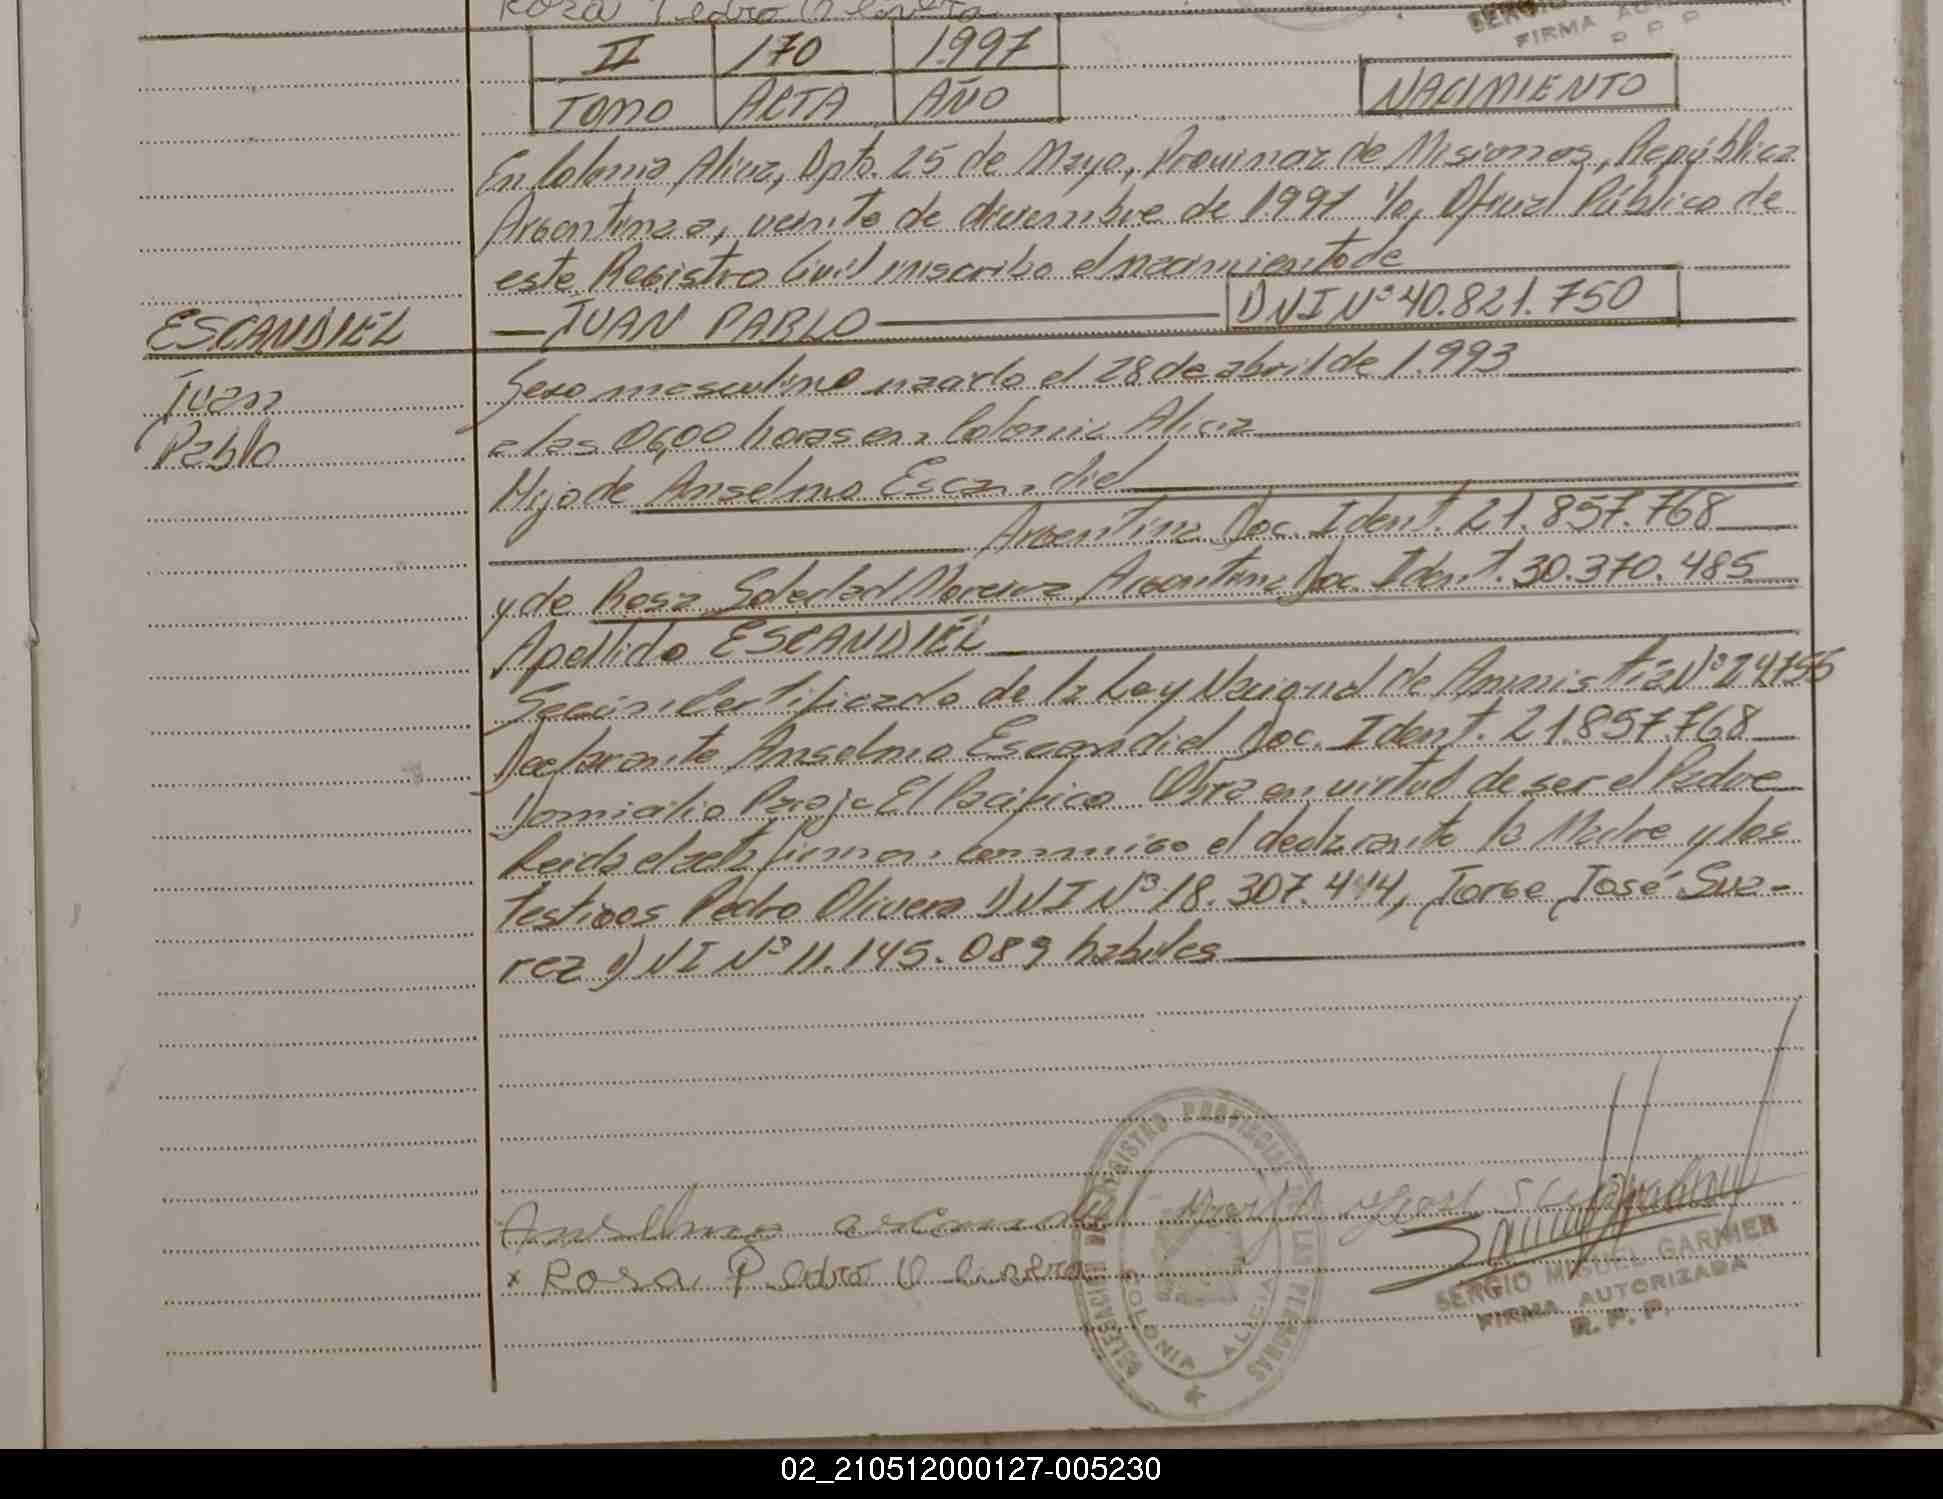 Rosa Pedro Olivera
SERGIO
FIRMA AUTO
R P P
II 170 1.997
TOMO ACTA AÑO
NACIMIENTO
En Colonia Alicia, Dpto. 25 de Mayo, Provincia de Misiones, República
Argentina a, veinte de diciembre de 1.997 Yo, Oficial Público de
este Registro Civil inscribo el nacimiento de
ESCANDIEL
— JUAN PABLO — DNI Nº 40.821.750
Juan
Pablo
Sexo masculino nacido el 28 de abril de 1.993
a las 06,00 horas en, Colonia Alicia
Hijo de Anselmo Escandiel
Argentina Doc. Ident. 21.857.768
y de Rosa Soledad Moreira Argentina Doc. Ident. 30.370.485
Apellido ESCANDIEL
Según Certificado de la Ley Nacional de Amnistía Nº 24755
Declarante Anselmo Escandiel Doc. Ident. 21.857.768
Domicilio Paraje El Pacífico Obra en virtud de ser el Padre
Leída el acta firman, conmigo el declarante la Madre y los
testigos Pedro Olivera DNI Nº 18.307.414, Jorge José Sua-
rez DNI Nº 11.145.089 hábiles
Anselmo escandiel
x Rosa Pedro Olivera
REGISTRO PROVINCIAL DE LAS PERSONAS
COLONIA ALICIA
SERGIO MIGUEL GARNIER
FIRMA AUTORIZADA
R. P. P.
02_210512000127-005230